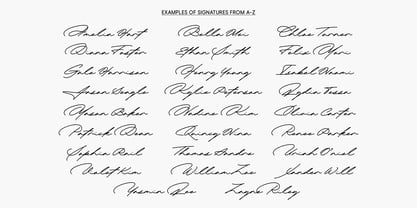 EXAMPLES OF SIGNATURES FROM A-Z
Amelia Hart Bella Wei Chloe Turner
Diana Foster Ethan Smith Felix Mori
Gale Harrison Henry Young Isabel Naomi
Jason Seagle Kylie Peterson Lydia Tessa
Mason Baker Nadine Kim Olivia Carter
Patrick Dean Quincy Nina Renee Parker
Sophia Reid Thomas Sandro Uriah O'niel
Violet Kim William Lee Xander Will
Yasmin Bee Zayne Riley